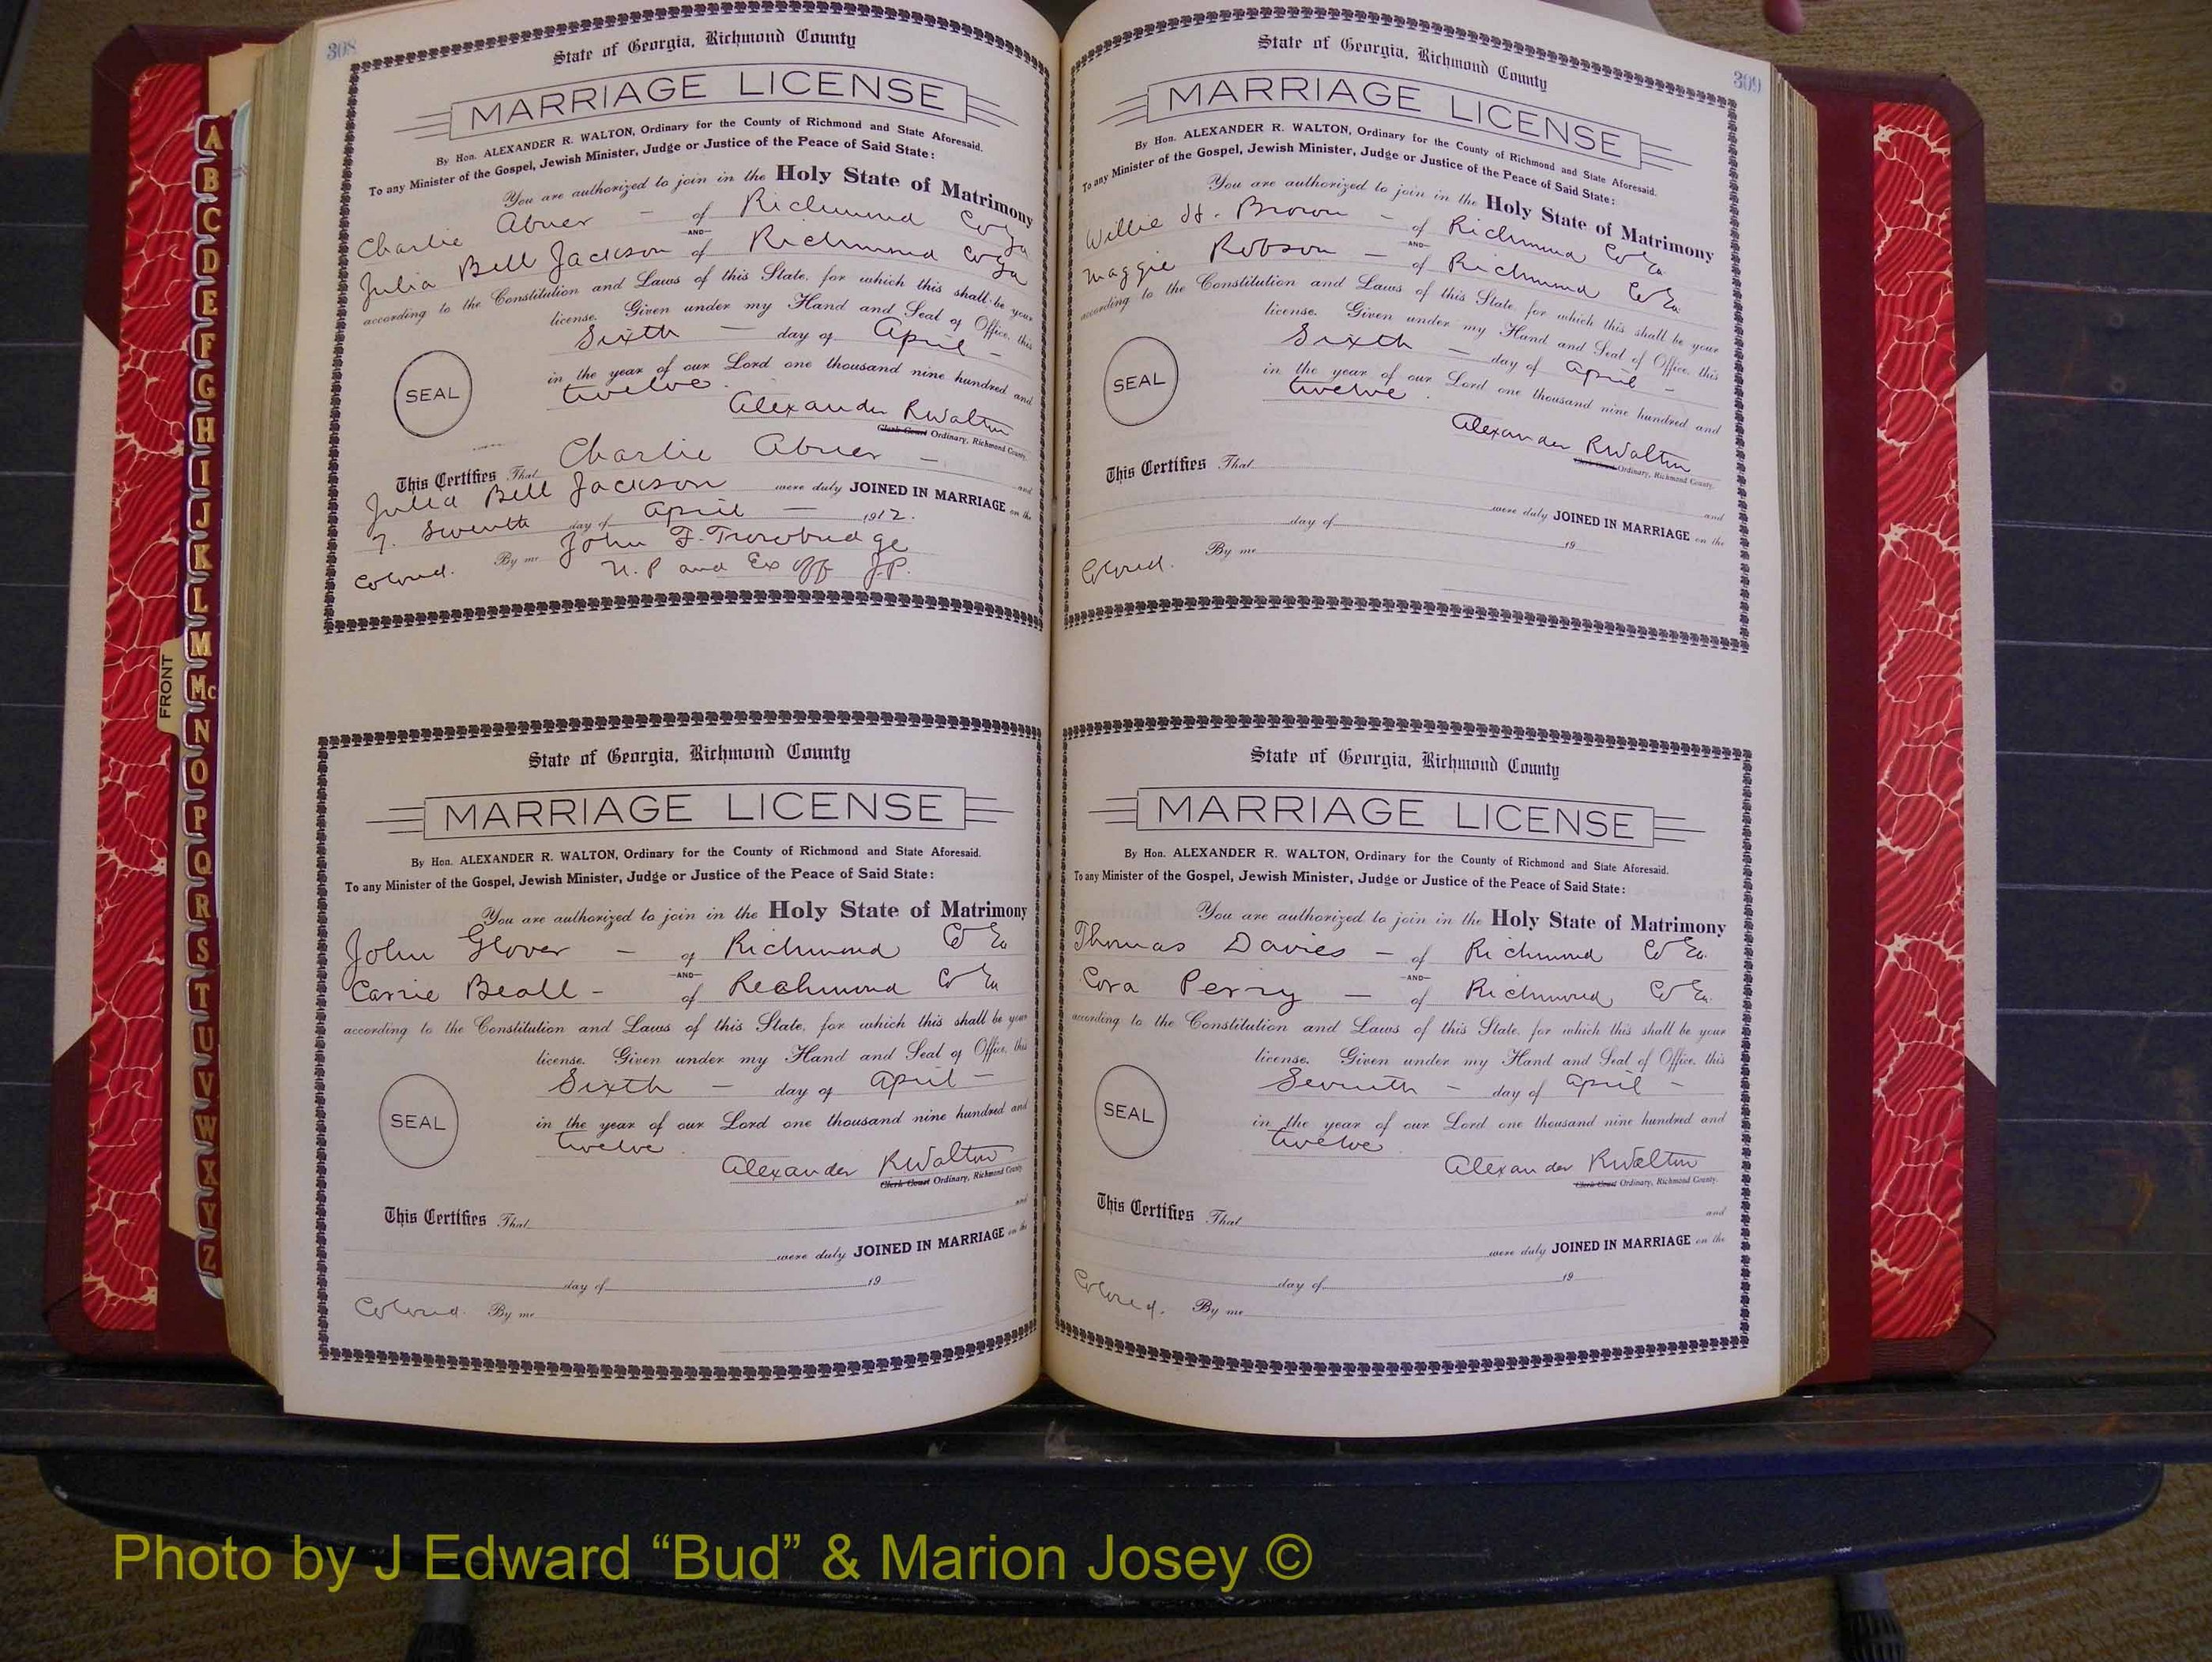 A
B
C
D
E
F
G
H
I
J
K
L
M
Mc
N
O
P
Q
R
S
T
U
V
W
X
Y
Z
FRONT
308
State of Georgia, Richmond County
MARRIAGE LICENSE
By Hon. ALEXANDER R. WALTON, Ordinary for the County of Richmond and State Aforesaid.
To any Minister of the Gospel, Jewish Minister, Judge or Justice of the Peace of Said State:
You are authorized to join in the Holy State of Matrimony
Charlie Abner - of Richmond Co Ga
AND
Julia Bell Jackson of Richmond Co Ga
according to the Constitution and Laws of this State, for which this shall be your
license. Given under my Hand and Seal of Office, this
Sixth - day of April -
SEAL
in the year of our Lord one thousand nine hundred and
twelve.
Alexander R Walton
Clerk Court Ordinary, Richmond County.
This Certifies That Charlie Abner - and
Julia Bell Jackson were duly JOINED IN MARRIAGE on the
7. Seventh day of April - 1912.
Colored. By me John F. Trowbridge
N. P and Ex Off J.P.
State of Georgia, Richmond County
MARRIAGE LICENSE
By Hon. ALEXANDER R. WALTON, Ordinary for the County of Richmond and State Aforesaid.
To any Minister of the Gospel, Jewish Minister, Judge or Justice of the Peace of Said State:
You are authorized to join in the Holy State of Matrimony
John Glover - of Richmond Co Ga
AND
Carrie Beall - of Richmond Co Ga
according to the Constitution and Laws of this State, for which this shall be your
license. Given under my Hand and Seal of Office, this
Sixth - day of April -
SEAL
in the year of our Lord one thousand nine hundred and
twelve.
Alexander R Walton
Clerk Court Ordinary, Richmond County
This Certifies That and
were duly JOINED IN MARRIAGE on the
day of 19
Colored. By me
309
State of Georgia, Richmond County
MARRIAGE LICENSE
By Hon. ALEXANDER R. WALTON, Ordinary for the County of Richmond and State Aforesaid.
To any Minister of the Gospel, Jewish Minister, Judge or Justice of the Peace of Said State:
You are authorized to join in the Holy State of Matrimony
Willie H. Brown - of Richmond Co Ga
AND
Maggie Robson - of Richmond Co Ga
according to the Constitution and Laws of this State, for which this shall be your
license. Given under my Hand and Seal of Office, this
Sixth - day of April -
SEAL
in the year of our Lord one thousand nine hundred and
twelve.
Alexander R Walton
Clerk Court Ordinary, Richmond County.
This Certifies That and
were duly JOINED IN MARRIAGE on the
day of 19
Colored. By me
State of Georgia, Richmond County
MARRIAGE LICENSE
By Hon. ALEXANDER R. WALTON, Ordinary for the County of Richmond and State Aforesaid.
To any Minister of the Gospel, Jewish Minister, Judge or Justice of the Peace of Said State:
You are authorized to join in the Holy State of Matrimony
Thomas Davies - of Richmond Co Ga.
AND
Cora Perry - of Richmond Co Ga.
according to the Constitution and Laws of this State, for which this shall be your
license. Given under my Hand and Seal of Office, this
Seventh - day of April -
SEAL
in the year of our Lord one thousand nine hundred and
twelve
Alexander R Walton
Clerk Court Ordinary, Richmond County.
This Certifies That and
were duly JOINED IN MARRIAGE on the
day of 19
Colored. By me
Photo by J Edward “Bud” & Marion Josey ©